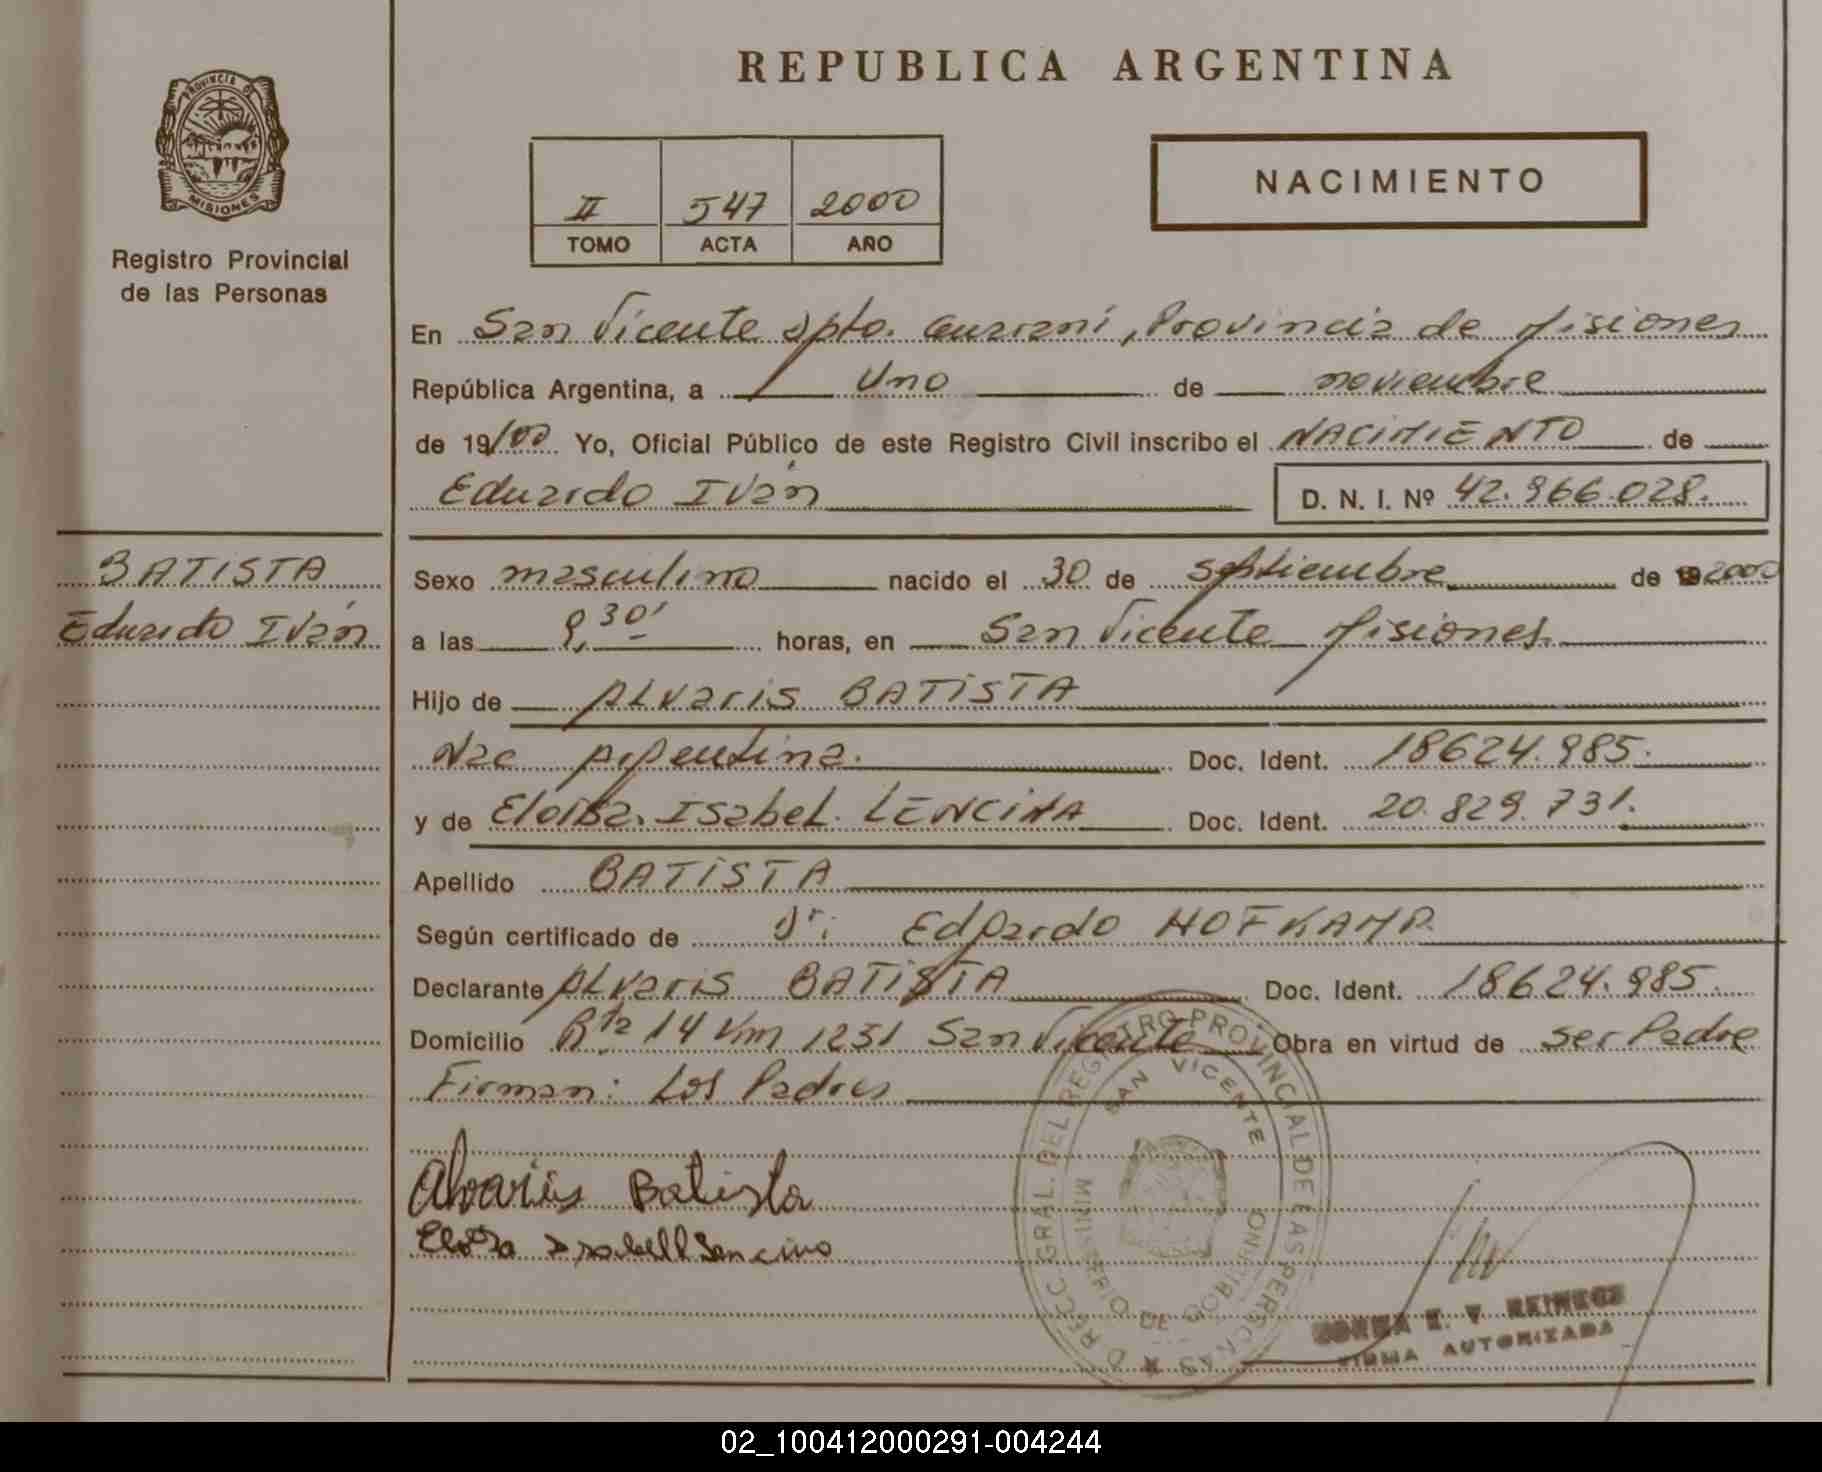 REPUBLICA ARGENTINA
PROVINCIA DE
MISIONES
Registro Provincial
de las Personas
II 547 2000
TOMO ACTA AÑO
NACIMIENTO
En San Vicente Dpto. Guaraní, Provincia de Misiones
República Argentina, a Uno de noviembre
de 19/00 Yo, Oficial Público de este Registro Civil inscribo el NACIMIENTO de
Eduardo Iván D. N. I. Nº 42.966.028.
BATISTA
Eduardo Iván
Sexo masculino nacido el 30 de septiembre de 2000
a las 9,30' horas, en San Vicente Misiones.
Hijo de ALvaris BATISTA
Nac Argentina. Doc. Ident. 18624.985.
y de Eloisa. Isabel. LENCINA Doc. Ident. 20.829.731.
Apellido BATISTA
Según certificado de Dr. Edgardo HOFKAMP.
Declarante ALvaris BATISTA Doc. Ident. 18624.985.
Domicilio Rta 14 Km 1231 San Vicente Obra en virtud de ser Padre
Firman: Los Padres
Alvaris Batista
DIRECC. GRAL. DEL REGISTRO PROVINCIAL DE LAS PERSONAS
SAN VICENTE
MINISTERIO DE GOBIERNO
NORMA E. V. REINECK
FIRMA AUTORIZADA
02_100412000291-004244